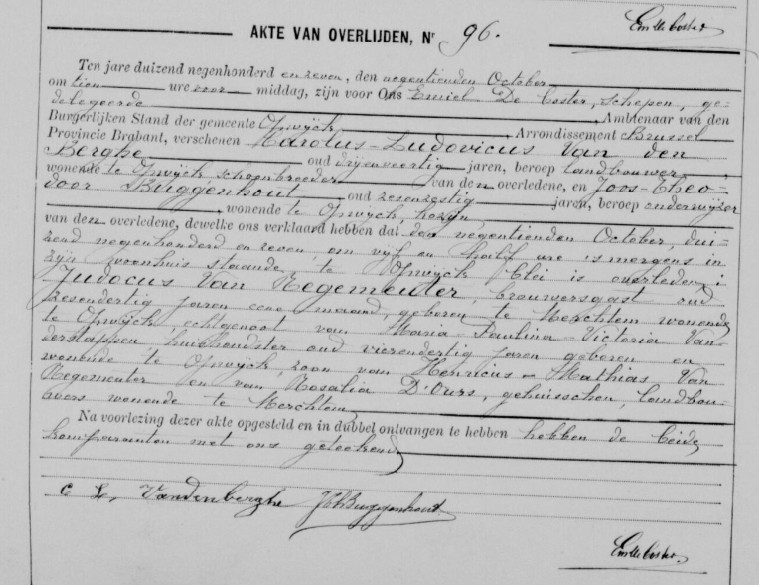 Em De Coster
AKTE VAN OVERLIJDEN, Nr 96.
Ten jare duizend negenhonderd en zeven, den negentienden October
om tien ure voor middag, zijn voor Ons Emiel De Coster, schepen, ge=
delegeerde Ambtenaar van den
Burgerlijken Stand der gemeente Opwyck, Arrondissement Brussel
Provincie Brabant, verschenen Karolus-Ludovicus Van den
Berghe oud dryenveertig jaren, beroep landbouwer,
wonende te Opwyck schoonbroeder van den overledene, en Joos-Theo=
door Buggenhout oud zesenzestig jaren, beroep onderwyzer
, wonende te Opwyck, kozyn
van den overledene, dewelke ons verklaard hebben dat den negentienden October, dui=
zend negenhonderd en zeven, om vyf en half ure 's morgens in
zyn woonhuis staande te Opwyck Clei is overleden:
Judocus Van Regemeuter, brouwersgast oud
zesendertig jaren eene maand, geboren te Merchtem wonende
te Opwyck, echtgenoot van Maria-Paulina-Victoria Van=
derstappen, huishoudster oud vierendertig jaren geboren en
wonende te Opwyck, zoon van Henricus-Mathias Van
Regemeuter en van Rosalia D'Ours, gehuisschen, landbou=
wers wonende te Merchtem
Na voorlezing dezer akte opgesteld en in dubbel ontvangen te hebben hebben de beide
komparanten met ons geteekend
C L, Vandenberghe JThBuggenhout
Em De Coster